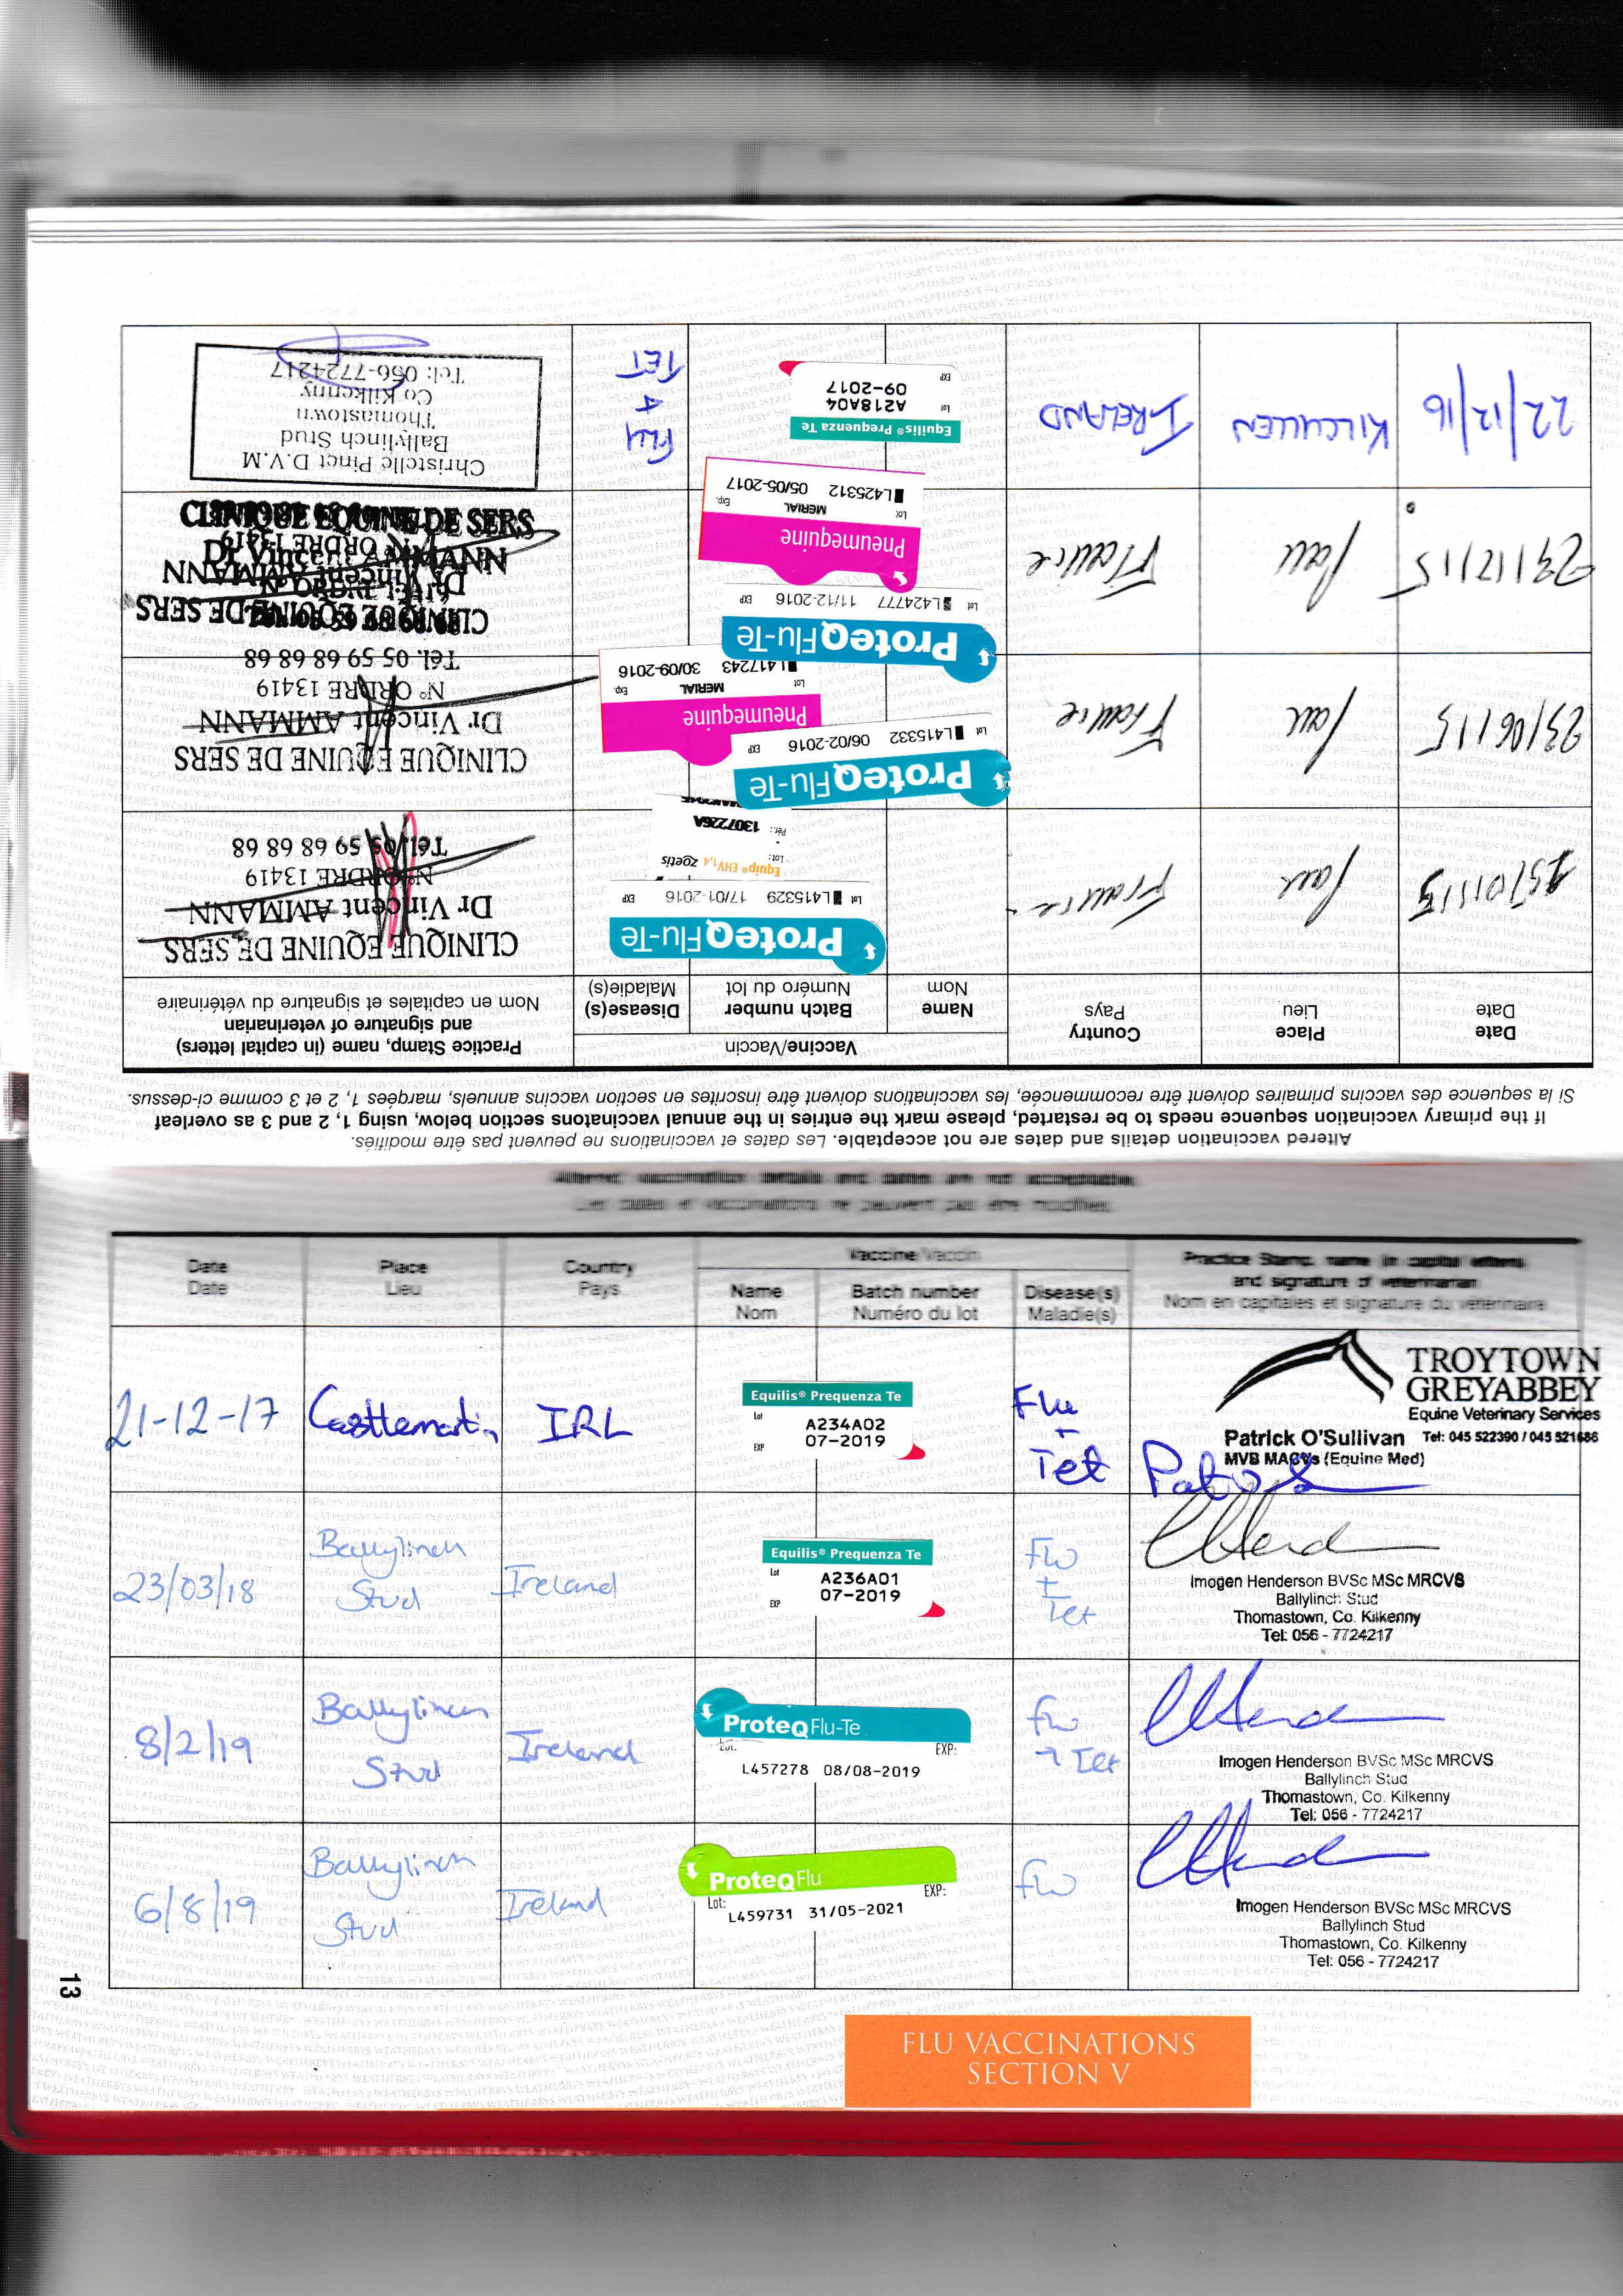 Altered vaccination details and dates are not acceptable. Les dates et vaccinations ne peuvent pas être modifiés.
If the primary vaccination sequence needs to be restarted, please mark the entries in the annual vaccinatons section below, using 1, 2 and 3 as overleaf
Si la séquence des vaccins primaires doivent être recommencée, les vaccinations doivent être inscrites en section vaccins annuels, marqées 1, 2 et 3 comme ci-dessus.
Date
Date
Place
Lieu
Country
Pays
Vaccine/Vaccin
Name
Nom
Batch number
Numéro du lot
Disease(s)
Maladie(s)
Practice Stamp, name (in capital letters)
and signature of veterinarian
Nom en capitales et signature du vétérinaire
15/01/15
Pau
France
ProteqFlu-Te
Lot L415329 17/01-2016 EXP
Equip® EHV1,4 zoetis
Lot:
Pér.: 1307226A
CLINIQUE EQUINE DE SERS
Dr Vincent AMMANN
N° ORDRE 13419
Tél. 05 59 68 68 68
23/06/15
Pau
France
ProteqFlu-Te
Lot L415332 06/02-2016 EXP
Pneumequine
MERIAL
Lot Exp.
L417243 30/09-2016
CLINIQUE EQUINE DE SERS
Dr Vincent AMMANN
N° ORDRE 13419
Tél. 05 59 68 68 68
29/12/15
Pau
France
ProteqFlu-Te
Lot L424777 11/12-2016 EXP
Pneumequine
MERIAL
Lot Exp.
L425312 05/05-2017
CLINIQUE EQUINE DE SERS
Dr Vincent AMMANN
N° ORDRE 13419
22/12/16
KILCULLEN
IRELAND
Equilis® Prequenza Te
Lot A218A04
EXP 09-2017
Flu
&
TET
Christelle Pinct D.V.M
Ballylinch Stud
Thomastown
Co Kilkenny
Tel: 056-7724217
Altered vaccination details and dates are not acceptable.
Les dates et vaccinations ne peuvent pas être modifiés.
Date
Date
Place
Lieu
Country
Pays
Vaccine/Vaccin
Name
Nom
Batch number
Numéro du lot
Disease(s)
Maladie(s)
Practice Stamp, name (in capital letters)
and signature of veterinarian
Nom en capitales et signature du vétérinaire
21-12-17
Castlemartin
IRL
Equilis® Prequenza Te
Lot A234A02
EXP 07-2019
Flu
+
Tet
TROYTOWN
GREYABBEY
Equine Veterinary Services
Patrick O'Sullivan Tel: 045 522390 / 045 521686
MVB MACVs (Equine Med)
23/03/18
Ballylinch
Stud
Ireland
Equilis® Prequenza Te
Lot A236A01
EXP 07-2019
Flu
+
Tet
Imogen Henderson BVSc MSc MRCVS
Ballylinch Stud
Thomastown, Co. Kilkenny
Tel: 056 - 7724217
8/2/19
Ballylinch
Stud
Ireland
ProteqFlu-Te
Lot: EXP:
L457278 08/08-2019
Flu
+ Tet
Imogen Henderson BVSc MSc MRCVS
Ballylinch Stud
Thomastown, Co. Kilkenny
Tel: 056 - 7724217
6/8/19
Ballylinch
Stud
Ireland
ProteqFlu
Lot: EXP:
L459731 31/05-2021
Flu
Imogen Henderson BVSc MSc MRCVS
Ballylinch Stud
Thomastown, Co. Kilkenny
Tel: 056 - 7724217
13
FLU VACCINATIONS
SECTION V